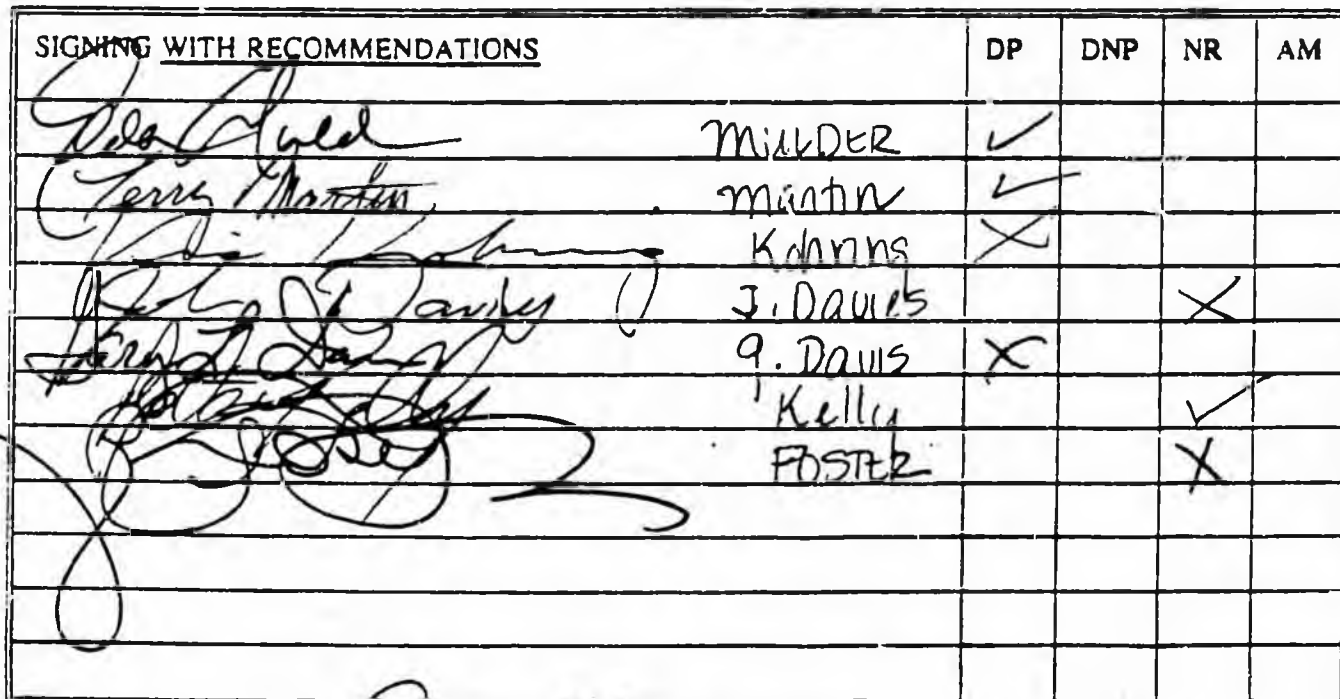 SIGNING WITH RECOMMENDATIONS DP DNP NR AM
MULDER ✓
Terry Martin Martin ✓
X
Davies J. Davies X
G. Davis X
Kelly ✓
FOSTER X